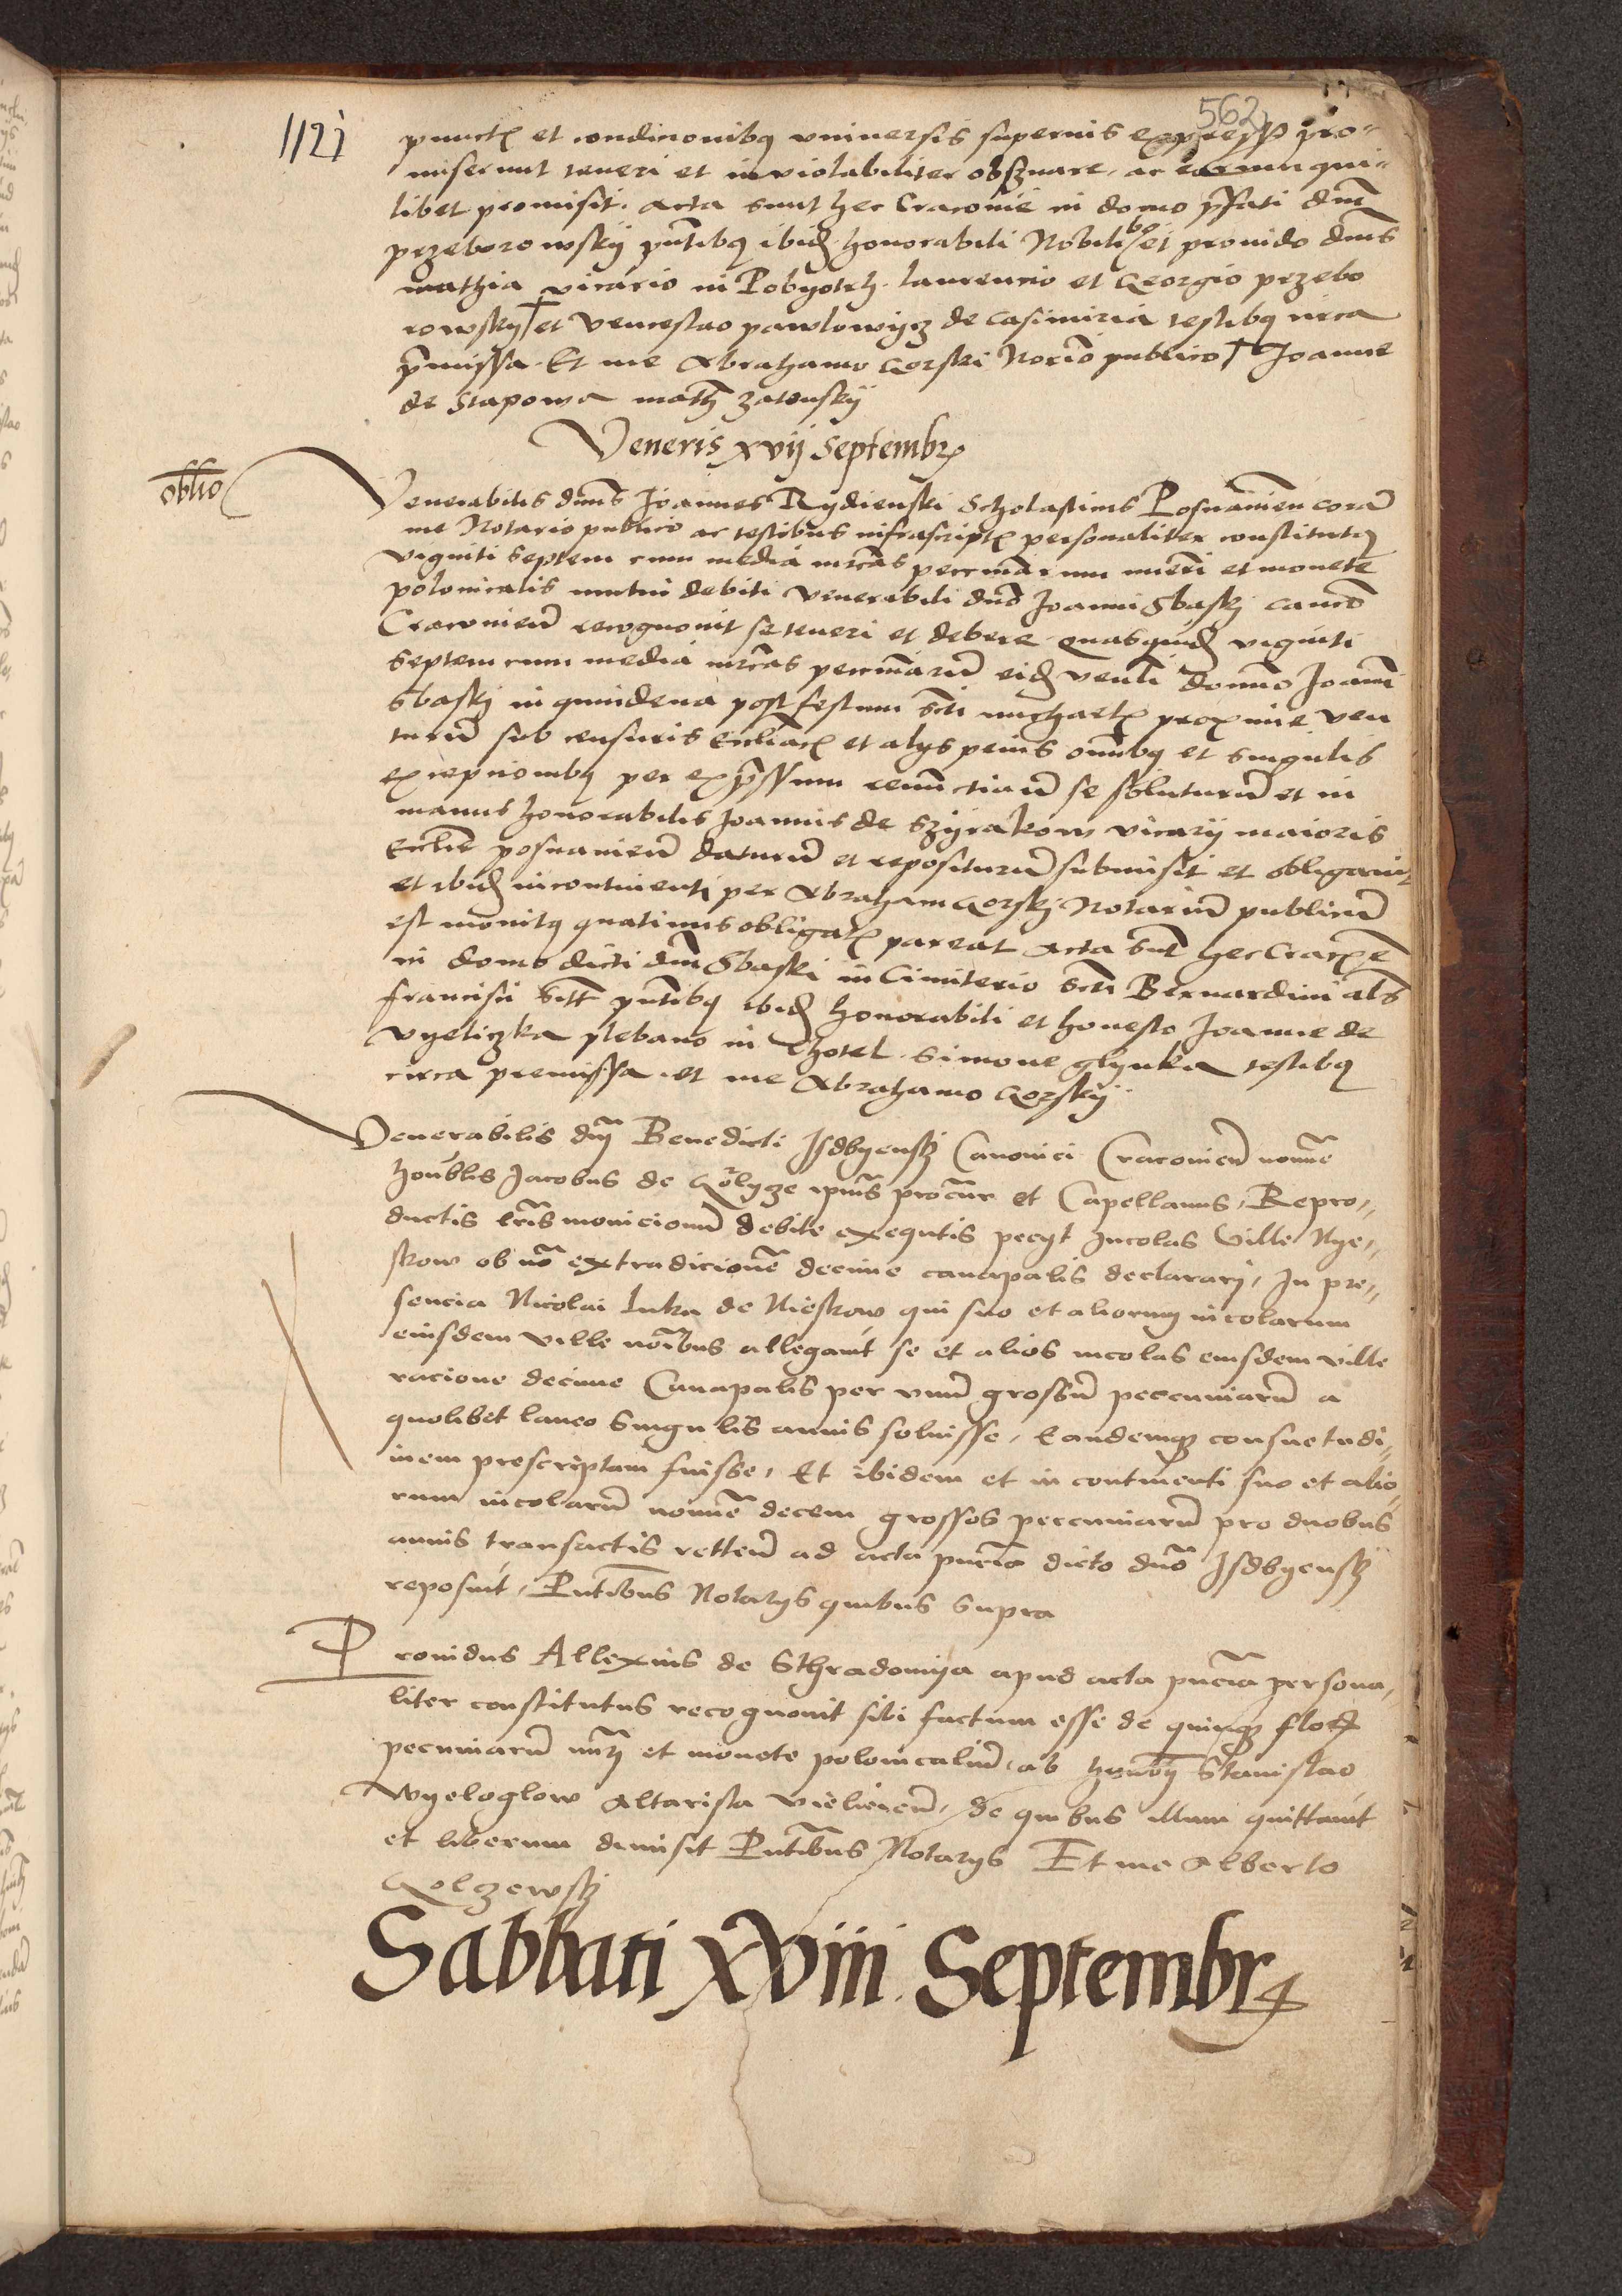 562
1121
punctis et condicionibus universis supernis expressis pro-
miserunt teneri et inviolabiliter observare, ac eorum qui-
libet promisit. Acta sunt hec Cracovie in domo prefati dni
przeborowskÿ pntibus ibidem honorabili Nobilibus et provido dnis
mathia vicario in Pobyotrh. laurencio et Georgio przebo
rowskÿ † et Venceslao pawlowÿcz de Casimiria testibus circa
premissa. Et me Abrahamo Gorski Notario publico † Joanne
de Stapowa math zatonskÿ
Veneris xvij Septembr
oblio
Venerabilis dnus Joannes Rydzienski Scholasticus Posnanien coram
me Notario publico ac testibus infrascriptis personaliter constitutus
viginti septem cum media mrcas peccuniarum numeri et monete
polonicalis mutui debiti venerabili dno Joanni Sbaskj canco
Cracovien recognovit se teneri et debere. quasquidem viginti
septem cum media mrcas peccuniarum eidem venli domino Joanni
Sbaskj in quindena post festum scti michaelis proxime ven
turum sub censuris eccliacis et alys penis omnibus et singulis
excepcionibus per expressum renunctiarum se soluturum et in
manus honorabilis Joannis de Szyrakow vicarÿ maioris
Ecclie posnanien daturum et repositurum submisit et obligavit
et ibidem incontinenti per Abraham Gorskj Notarium publicum
est monitus quatinus obligatis pareat Acta sunt hec Cracovie
in domo dicti dni Sbaski in Cimiterio scti Bernardini als
francisci sitt pntibus ibidem honorabili et honesto Joanne de
vyeliczka plebano in Chotel. Simone glynka testibus
circa premissa. et me Abrahamo Gorskÿ
Venerabilis dnj Benedicti Jsdbyenskj Canonici Cracovien nomine
honblis Jacobus de Golyze ipius procur et Capellanus, Repro,,
ductis lris monicionum debite exequtis pecyt Jncolas Ville Nye,,
skow ob non extradicionem decime canapalis declararj, Jn pre,,
sencia Nicolai luka de Nieskow qui suo et aliorum incolarum
eiusdem ville nomibus allegavit se et alios incolas eiusdem ville
racione decime Canapalis per unum grossum peccuniarum a
quolibet laneo singulis annis solvisse, Eandemque consuetudi,,
nem prescriptam fuisse, Et ibidem et in continenti suo et alio,,
rum incolarum nomine decem grossos peccuniarum pro duobus
annis transactis retten ad acta pncia dicto dno Jsdbyenskj
reposuit, Pntibus Notarys quibus supra
Providus Allexius de Sthradomÿa apud acta pncia persona,
liter constitutus recognovit sibi factum esse de quinque flor
pecuniarum numeri et monete polonicalium, ab honobli Stanislao
Wyeloglow Altarista vielicien, de quibus illum quittavit
et liberum dimisit Pntibus Notarys Et me Alberto
Golzewskj
Sabbati xviii. Septembr